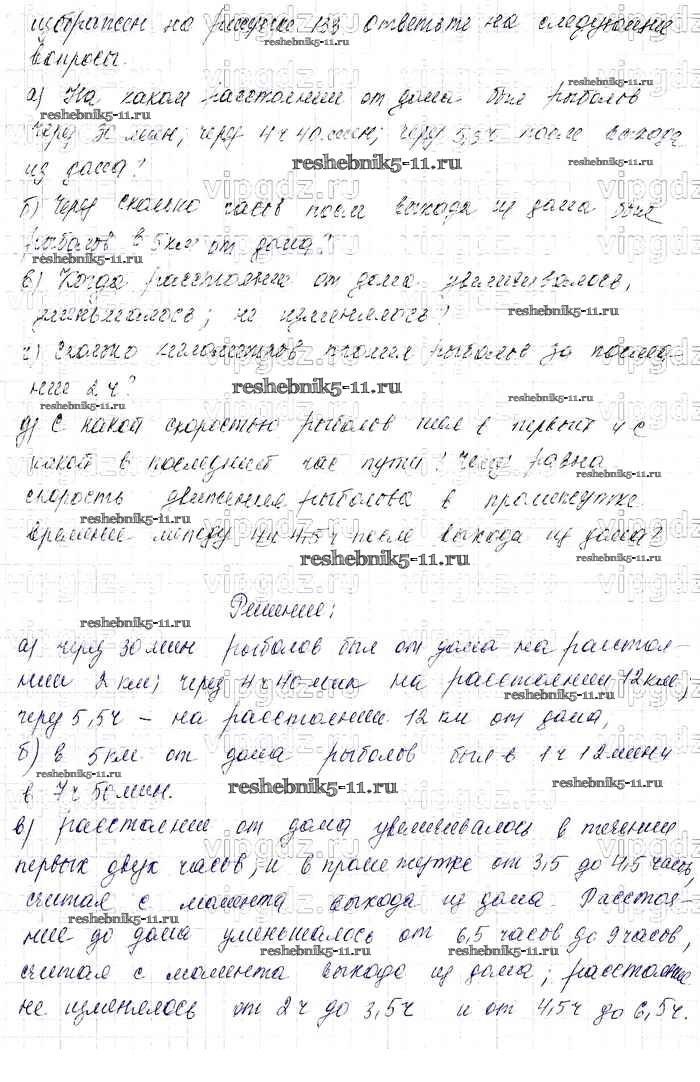 изображен на рисунке 133 ответьте на следующие
вопросы.
а) На каком расстоянии от дома был рыболов
через 30 мин; через 4 ч 40 мин; через 5,5 ч после выхода
из дома?
б) Через сколько часов после выхода из дома был
рыболов в 5 км от дома?
в) Когда расстояние от дома увеличивалось,
уменьшалось; не изменялось?
г) Сколько километров прошел рыболов за послед-
ние 2 ч?
д) С какой скоростью рыболов шел в первый и с
какой в последний час пути? Чему равна
скорость движения рыболова в промежутке
времени между 4 и 4,5 ч после выхода из дома?
Решение:
а) через 30 мин рыболов был от дома на расстоя-
нии 2 км; через 4 ч 40 мин на расстоянии 12 км,
через 5,5 ч – на расстоянии 12 км от дома,
б) в 5 км от дома рыболов был в 1 ч 12 мин и
в 7 ч 50 мин.
в) расстояние от дома увеличивалось в течении
первых двух часов, и в промежутке от 3,5 до 4,5 часа,
считая с момента выхода из дома. Расстоя-
ние до дома уменьшалось от 6,5 часов до 9 часов,
считая с момента выхода из дома; расстояние
не изменялось от 2 ч до 3,5 ч и от 4,5 ч до 6,5 ч.
reshebnik5-11.ru
vipgdz.ru